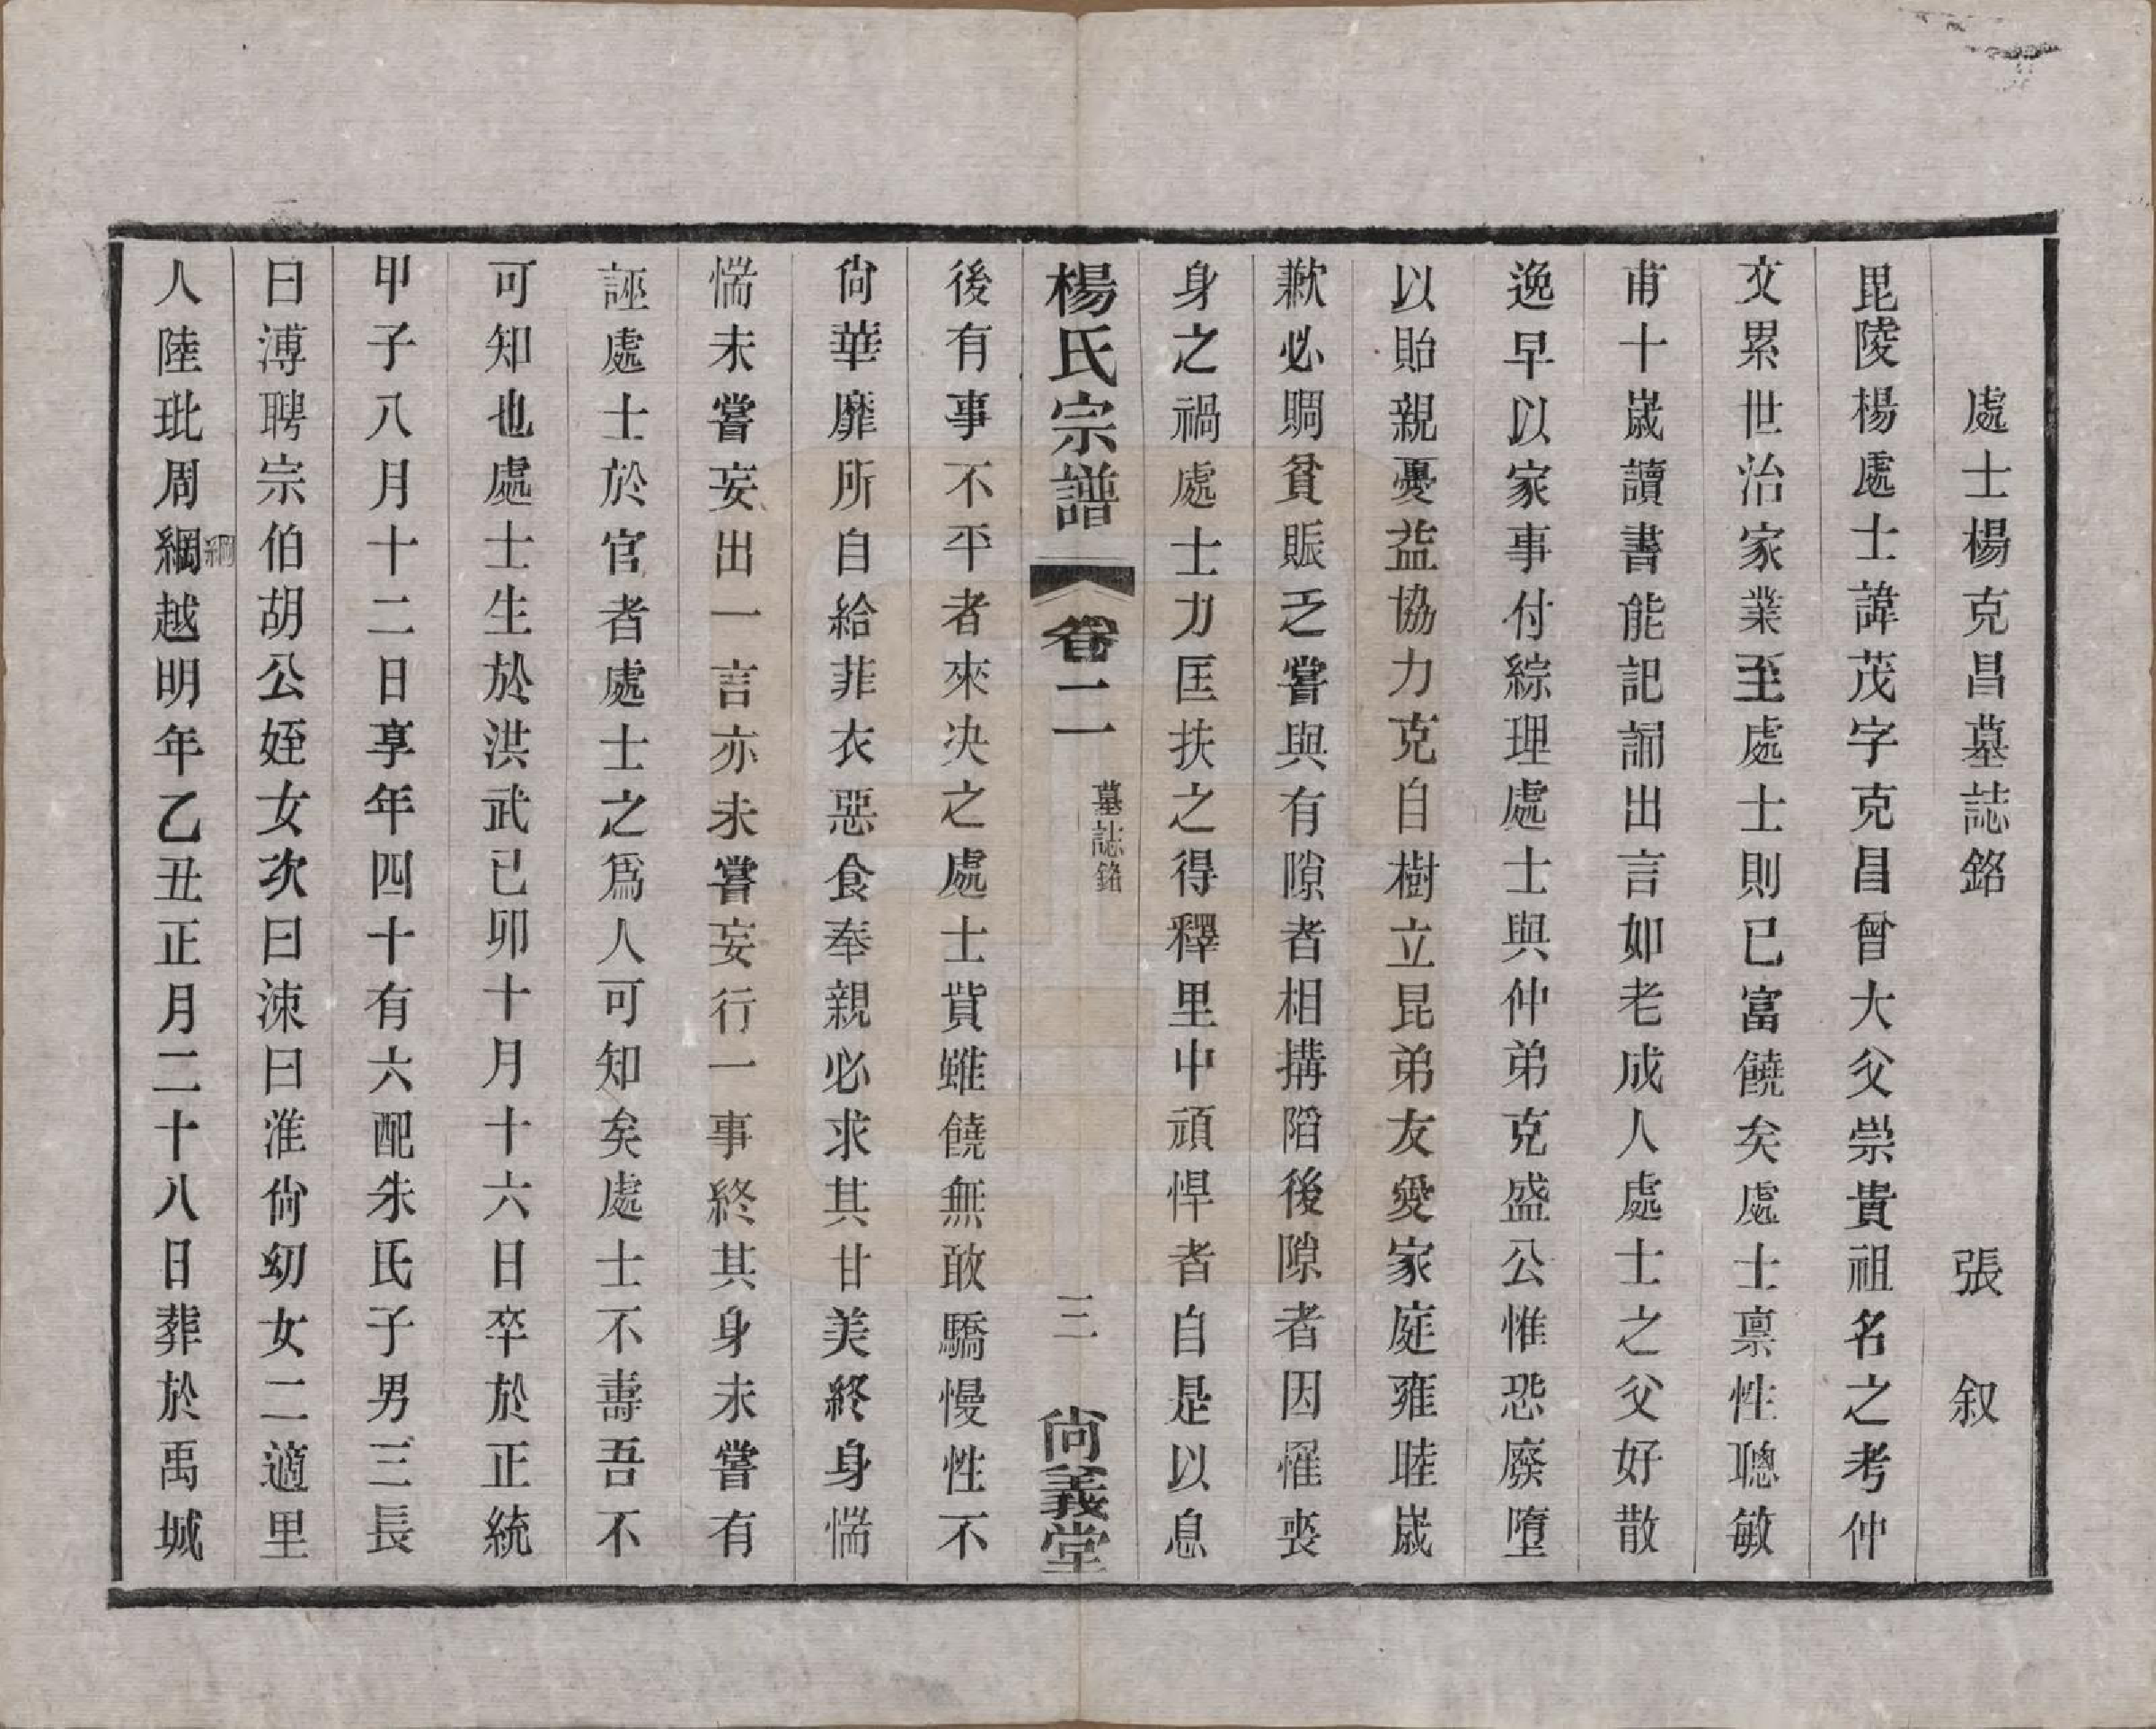 處士楊克昌墓誌銘　張　叙
毘陵楊處士諱茂字克昌曾大父崇貴祖名之考仲
文累世治家業至處士則已富饒矣處士禀性聰敏
甫十歲讀書能記誦出言如老成人處士之父好散
逸早以家事付綜理處士與仲弟克盛公惟恐廢墮
以貽親憂益協力克自樹立昆弟友愛家庭雍睦歲
歉必賙貧賑乏嘗與有隙者相搆陷後隙者因罹喪
身之禍處士力匡扶之得釋里中頑悍者自是以息
楊氏宗譜　卷二　墓誌銘　三　尙義堂
後有事不平者來决之處士貲雖饒無敢驕慢性不
尙華靡所自給菲衣惡食奉親必求其甘美終身惴
惴未嘗妄出一言亦未嘗妄行一事終其身未嘗有
誣處士於官者處士之爲人可知矣處士不壽吾不
可知也處士生於洪武己卯十月十六日卒於正統
甲子八月十二日享年四十有六配朱氏子男三長
曰溥聘宗伯胡公姪女次曰涑曰淮尙幼女二適里
人陸玭周綱綱越明年乙丑正月二十八日葬於禹城